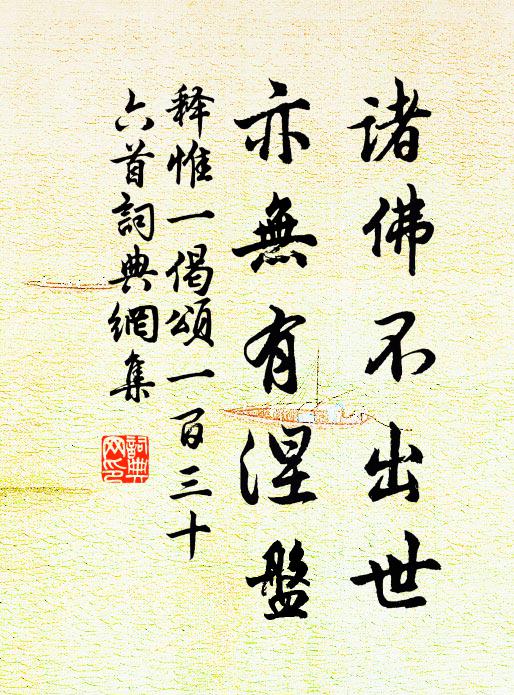 諸佛不出世
亦無有涅盤
释惟一偈頌一百三十
六首詞典網集
詞典
网印